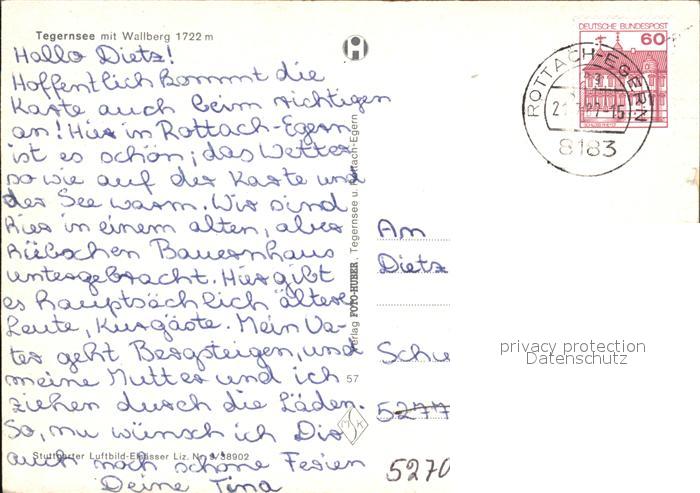 Tegernsee mit Wallberg 1722 m
Hallo Dietz!
Hoffentlich kommt die
Karte auch beim richtigen
an! Hier in Rottach-Egern
ist es schön; das Wetter
so wie auf der Karte und
der See warm. Wir sind
hier in einem alten, aber
hübschen Bauernhaus
untergebracht. Hier gibt
es hauptsächlich ältere
Leute, Kurgäste. Mein Va-
ter geht Bergsteigen, und
meine Mutter und ich
ziehen durch die Läden.
So, nu wünsch ich Dir
auch noch schöne Ferien
Deine Tina
Stuttgarter Luftbild-Elsässer Liz. Nr. 9/38902
Verlag FOTO-HUBER, Tegernsee u. Rottach-Egern
57
DEUTSCHE BUNDESPOST
60
ROTTACH-EGERN
8183
Am
Dietz
Schu
5277
5270
privacy protection
Datenschutz